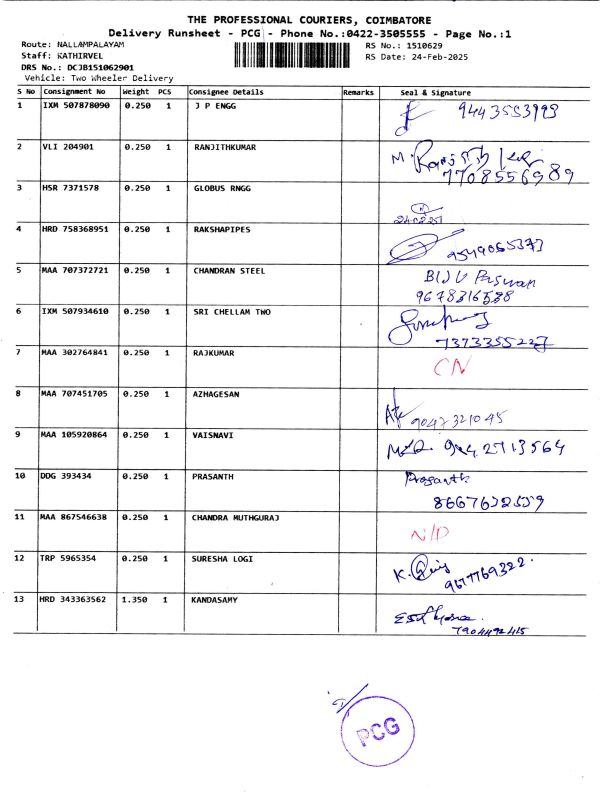 THE PROFESSIONAL COURIERS, COIMBATORE
Delivery Runsheet - PCG - Phone No.:0422-3505555 - Page No.:1
Route: NALLAMPALAYAM RS No.: 1510629
Staff: KATHIRVEL RS Date: 24-Feb-2025
DRS No.: DCJB151062901
Vehicle: Two Wheeler Delivery
S No Consignment No Weight PCS Consignee Details Remarks Seal & Signature
1 IXM 507878090 0.250 1 J P ENGG 9443553993
2 VLI 204901 0.250 1 RANJITHKUMAR M.
7708556989
3 HSR 7371578 0.250 1 GLOBUS RNGG
4 HRD 758368951 0.250 1 RAKSHAPIPES
5 MAA 707372721 0.250 1 CHANDRAN STEEL BIJU Paswan
9678316588
6 IXM 507934610 0.250 1 SRI CHELLAM TWO
7373355227
7 MAA 302764841 0.250 1 RAJKUMAR CN
8 MAA 707451705 0.250 1 AZHAGESAN
9047321045
9 MAA 105920864 0.250 1 VAISNAVI 9442713564
10 DDG 393434 0.250 1 PRASANTH Prasanth
8667632559
11 MAA 867546638 0.250 1 CHANDRA MUTHGURAJ N/D
12 TRP 5965354 0.250 1 SURESHA LOGI K.
9677769322.
13 HRD 343363562 1.350 1 KANDASAMY
7904492415
PCG